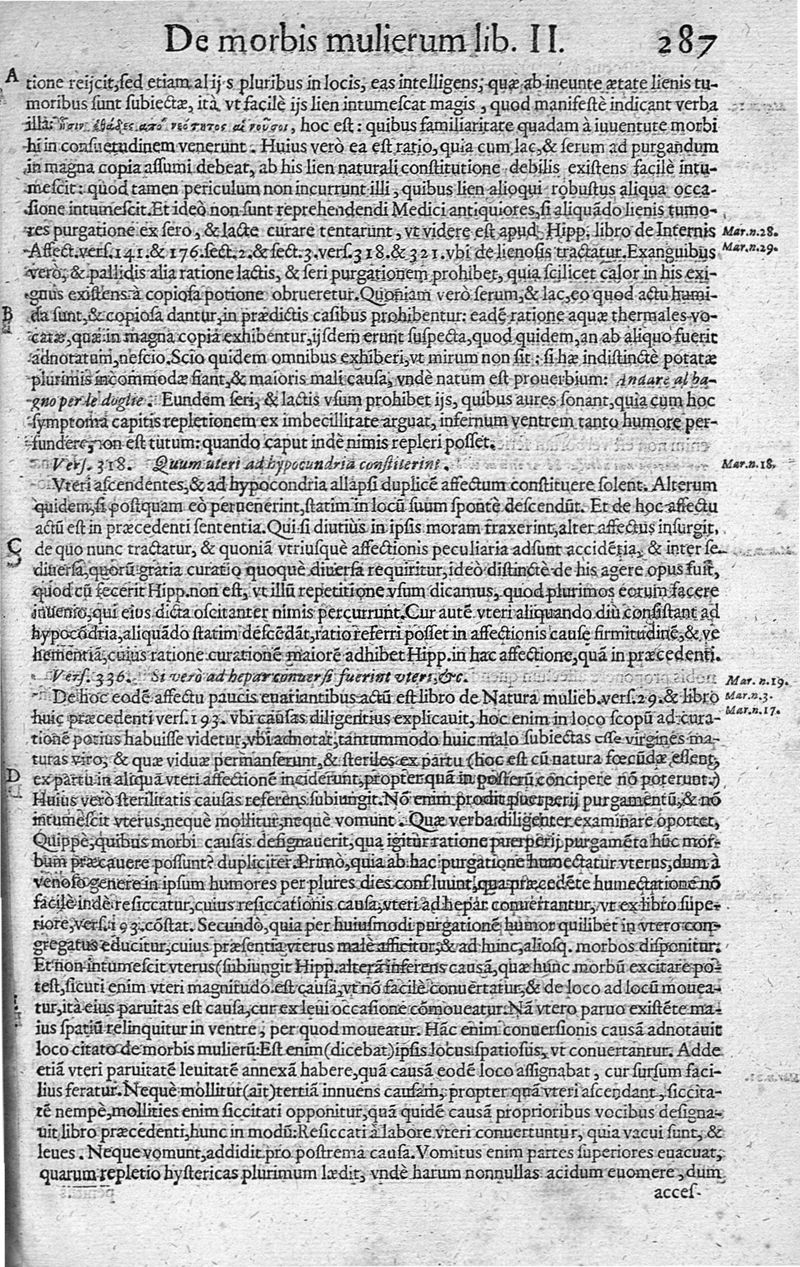 De morbis mulierum lib. II. 287
A tione reijcit, sed etiam alijs pluribus in locis, eas intelligens, quæ ab ineunte ætate lienis tu-
moribus sunt subiectæ, ità vt facilè ijs lien intumescat magis, quod manifestè indicant verba
illa: hoc est: quibus familiaritate quadam à iuuentute morbi
hi in consuetudinem venerunt. Huius verò ea est ratio, quia cum lac, & serum ad purgandum
in magna copia assumi debeat, ab his lien naturali constitutione debilis existens facilè intu-
mescit: quòd tamen periculum non incurrunt illi, quibus lien alioqui robustus aliqua occa-
sione intumescit. Et ideò non sunt reprehendendi Medici antiquiores, si aliquãdo lienis tumo-
res purgatione ex sero, & lacte curare tentarunt, vt videre est apud Hipp. libro de Internis Mar. n. 28.
Affect. vers. 141. & 176. sect. 2. & sect. 3. vers. 318. & 321. vbi de lienosis tractatur. Exanguibus Mar. n. 29.
verò, & pallidis alia ratione lactis, & seri purgationem prohibet, quia scilicet calor in his exi-
guus existens à copiosa potione obrueretur. Quoniam verò serum, & lac, eo quod actu humi-
B da sunt, & copiosa dantur, in prædictis casibus prohibentur: eadẽ ratione aquæ thermales vo-
catæ, quæ in magna copia exhibentur, ijsdem erunt suspecta, quod quidem, an ab aliquo fuerit
adnotatum, nescio. Scio quidem omnibus exhiberi, vt mirum non sit: si hæ indistinctè potatæ
plurimis incommodæ fiant, & maioris mali causa, vndè natum est prouerbium: Andare al ba-
gno per le doglie. Eundem seri, & lactis vsum prohibet ijs, quibus aures sonant, quia cum hoc
symptoma capitis repletionem ex imbecillitate arguat, infernum ventrem tanto humore per-
fundere, non est tutum: quando caput indè nimis repleri posset.
Vers. 318. Quum uteri ad hypocundria constiterint. Mar. n. 18.
Vteri ascendentes, & ad hypocondria allapsi duplicẽ affectum constituere solent. Alterum
quidem, si postquam eò peruenerint, statim in locũ suum spontè descendũt. Et de hoc affectu
actũ est in præcedenti sententia. Qui si diutius in ipsis moram traxerint, alter affectus insurgit,
C de quo nunc tractatur, & quoniã vtriusquè affectionis peculiaria adsunt accidẽtia, & inter se
diuersa, quorũ gratia curatio quoquè diuersa requiritur, ideò distinctè de his agere opus fuit,
quod cũ fecerit Hipp. non est, vt illũ repetitione vsum dicamus, quod plurimos eorum facere
inuenio, qui eius dicta oscitanter nimis percurrunt. Cur autẽ vteri aliquando diu consistant ad
hypocõdria, aliquãdo statim descẽdãt, ratio referri posset in affectionis causæ firmitudinẽ, & ve
hementiã, cuius ratione curationẽ maiorẽ adhibet Hipp. in hac affectione, quã in præcedenti.
Vers. 336. Si verò ad hepar conuersi fuerint vteri, &c. Mar. n. 19.
De hoc eodẽ affectu paucis euariantibus actũ est libro de Natura mulieb. vers. 29. & libro Mar. n. 3.
huic præcedenti vers. 193. vbi causas diligentius explicauit, hoc enim in loco scopũ ad cura- Mar. n. 17.
tionẽ potius habuisse videtur, vbi adnotat, tantummodo huic malo subiectas esse virgines ma-
turas viro; & quæ viduæ permanserunt, & steriles ex partu (hoc est cũ natura fœcundæ essent,
D ex partu in aliquã vteri affectionẽ inciderunt, propter quã in posterũ concipere nõ poterunt.)
Huius verò sterilitatis causas referens subiungit. Nõ enim prodit puerperij purgamentũ, & nõ
intumescit vterus, nequè mollitur, nequè vomunt. Quæ verba diligenter examinare oportet,
Quippè, quibus morbi causas designauerit, qua igitur ratione puerperij purgamẽta hũc mor-
bum præcauere possunt? dupliciter. Primò, quia ab hac purgatione humectatur vterus, dum à
venoso genere in ipsum humores per plures dies confluunt, qua præcedẽte humectatione nõ
facilè indè resiccatur, cuius resiccationis causa, vteri ad hepar conuertantur, vt ex libro supe-
riore, vers. 193. cõstat. Secundò, quia per huiusmodi purgationẽ humor quilibet in vtero con-
gregatus educitur, cuius præsentia vterus malè afficitur, & ad hunc, aliosq. morbos disponitur.
Et non intumescit vterus (subiungit Hipp. alterã inferens causã, quæ hunc morbũ excitare po-
test, sicuti enim vteri magnitudo est causa, vt nõ facilè conuertatur, & de loco ad locũ mouea-
tur, ità eius paruitas est causa, cur ex leui occasione cõmoueatur. Nã vtero paruo existẽte ma-
ius spatiũ relinquitur in ventre, per quod moueatur. Hãc enim conuersionis causã adnotauit
loco citato de morbis mulierũ: Est enim (dicebat) ipsis locus spatiosus, vt conuertantur. Adde
etiã vteri paruitatẽ leuitatẽ annexã habere, quã causã eodẽ loco assignabat, cur sursum faci-
lius feratur. Nequè mollitut (ait) tertiã innuens causam, propter quã vteri ascendant, siccita-
tẽ nempè, mollities enim siccitati opponitur, quã quidẽ causã proprioribus vocibus designa-
uit libro præcedenti, hunc in modũ: Resiccati à labore vteri conuertuntur, quia vacui sunt, &
leues. Neque vomunt, addidit pro postrema causa. Vomitus enim partes superiores euacuat,
quarum repletio hystericas plurimum lædit, vndè harum nonnullas acidum euomere, dum
acces-